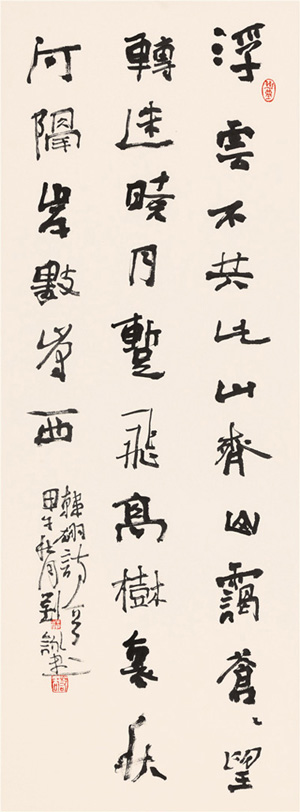 浮雲不共此山齊山靄蒼〻望
轉迷曉月蹔飛高樹裏秋
河隔岸數峯西
韓翃詩
甲午秋月劉